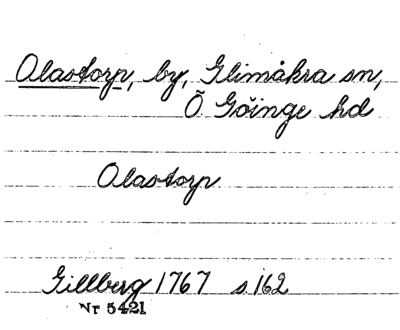 Olastorp, by, Glimåkra sn,
Ö Göinge hd
Olastorp
Gillberg 1767 s 162
Nr 5421